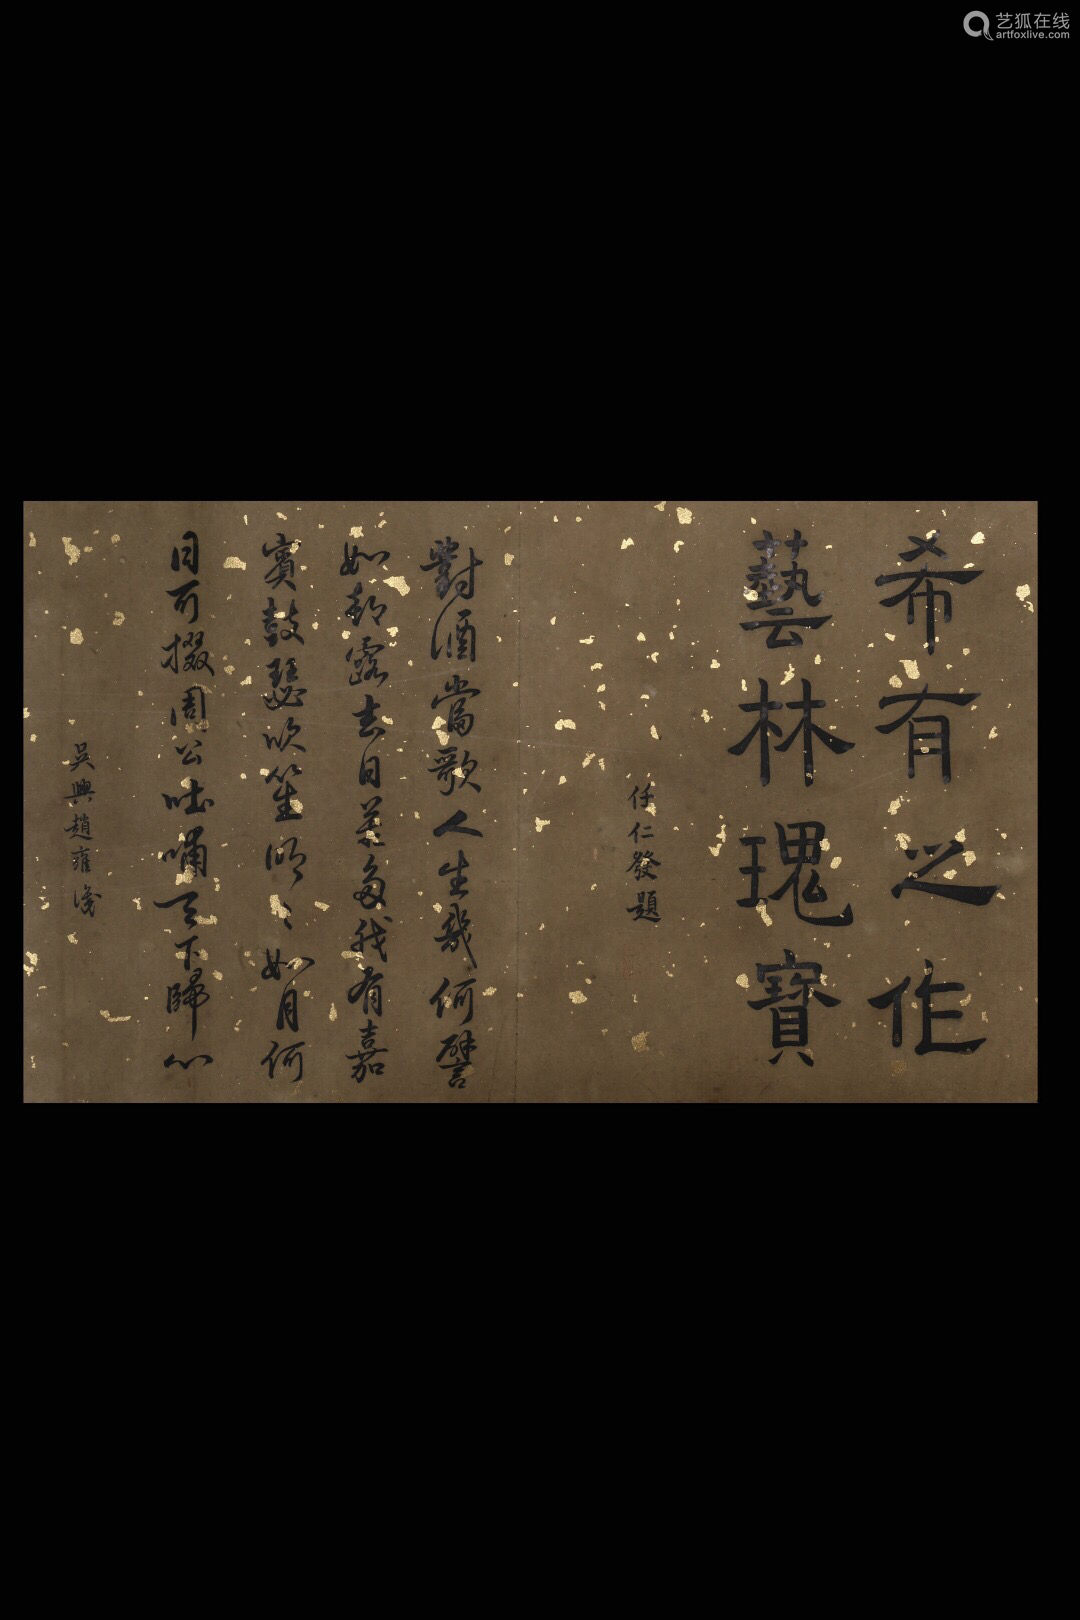 艺狐在线
artfoxlive.com
希有之作
藝林瑰寶
任仁發題
對酒當歌人生幾何譬
如朝露去日苦多我有嘉
賓鼓瑟吹笙明〻如月何
日可掇周公吐哺天下歸心
吳興趙雍識